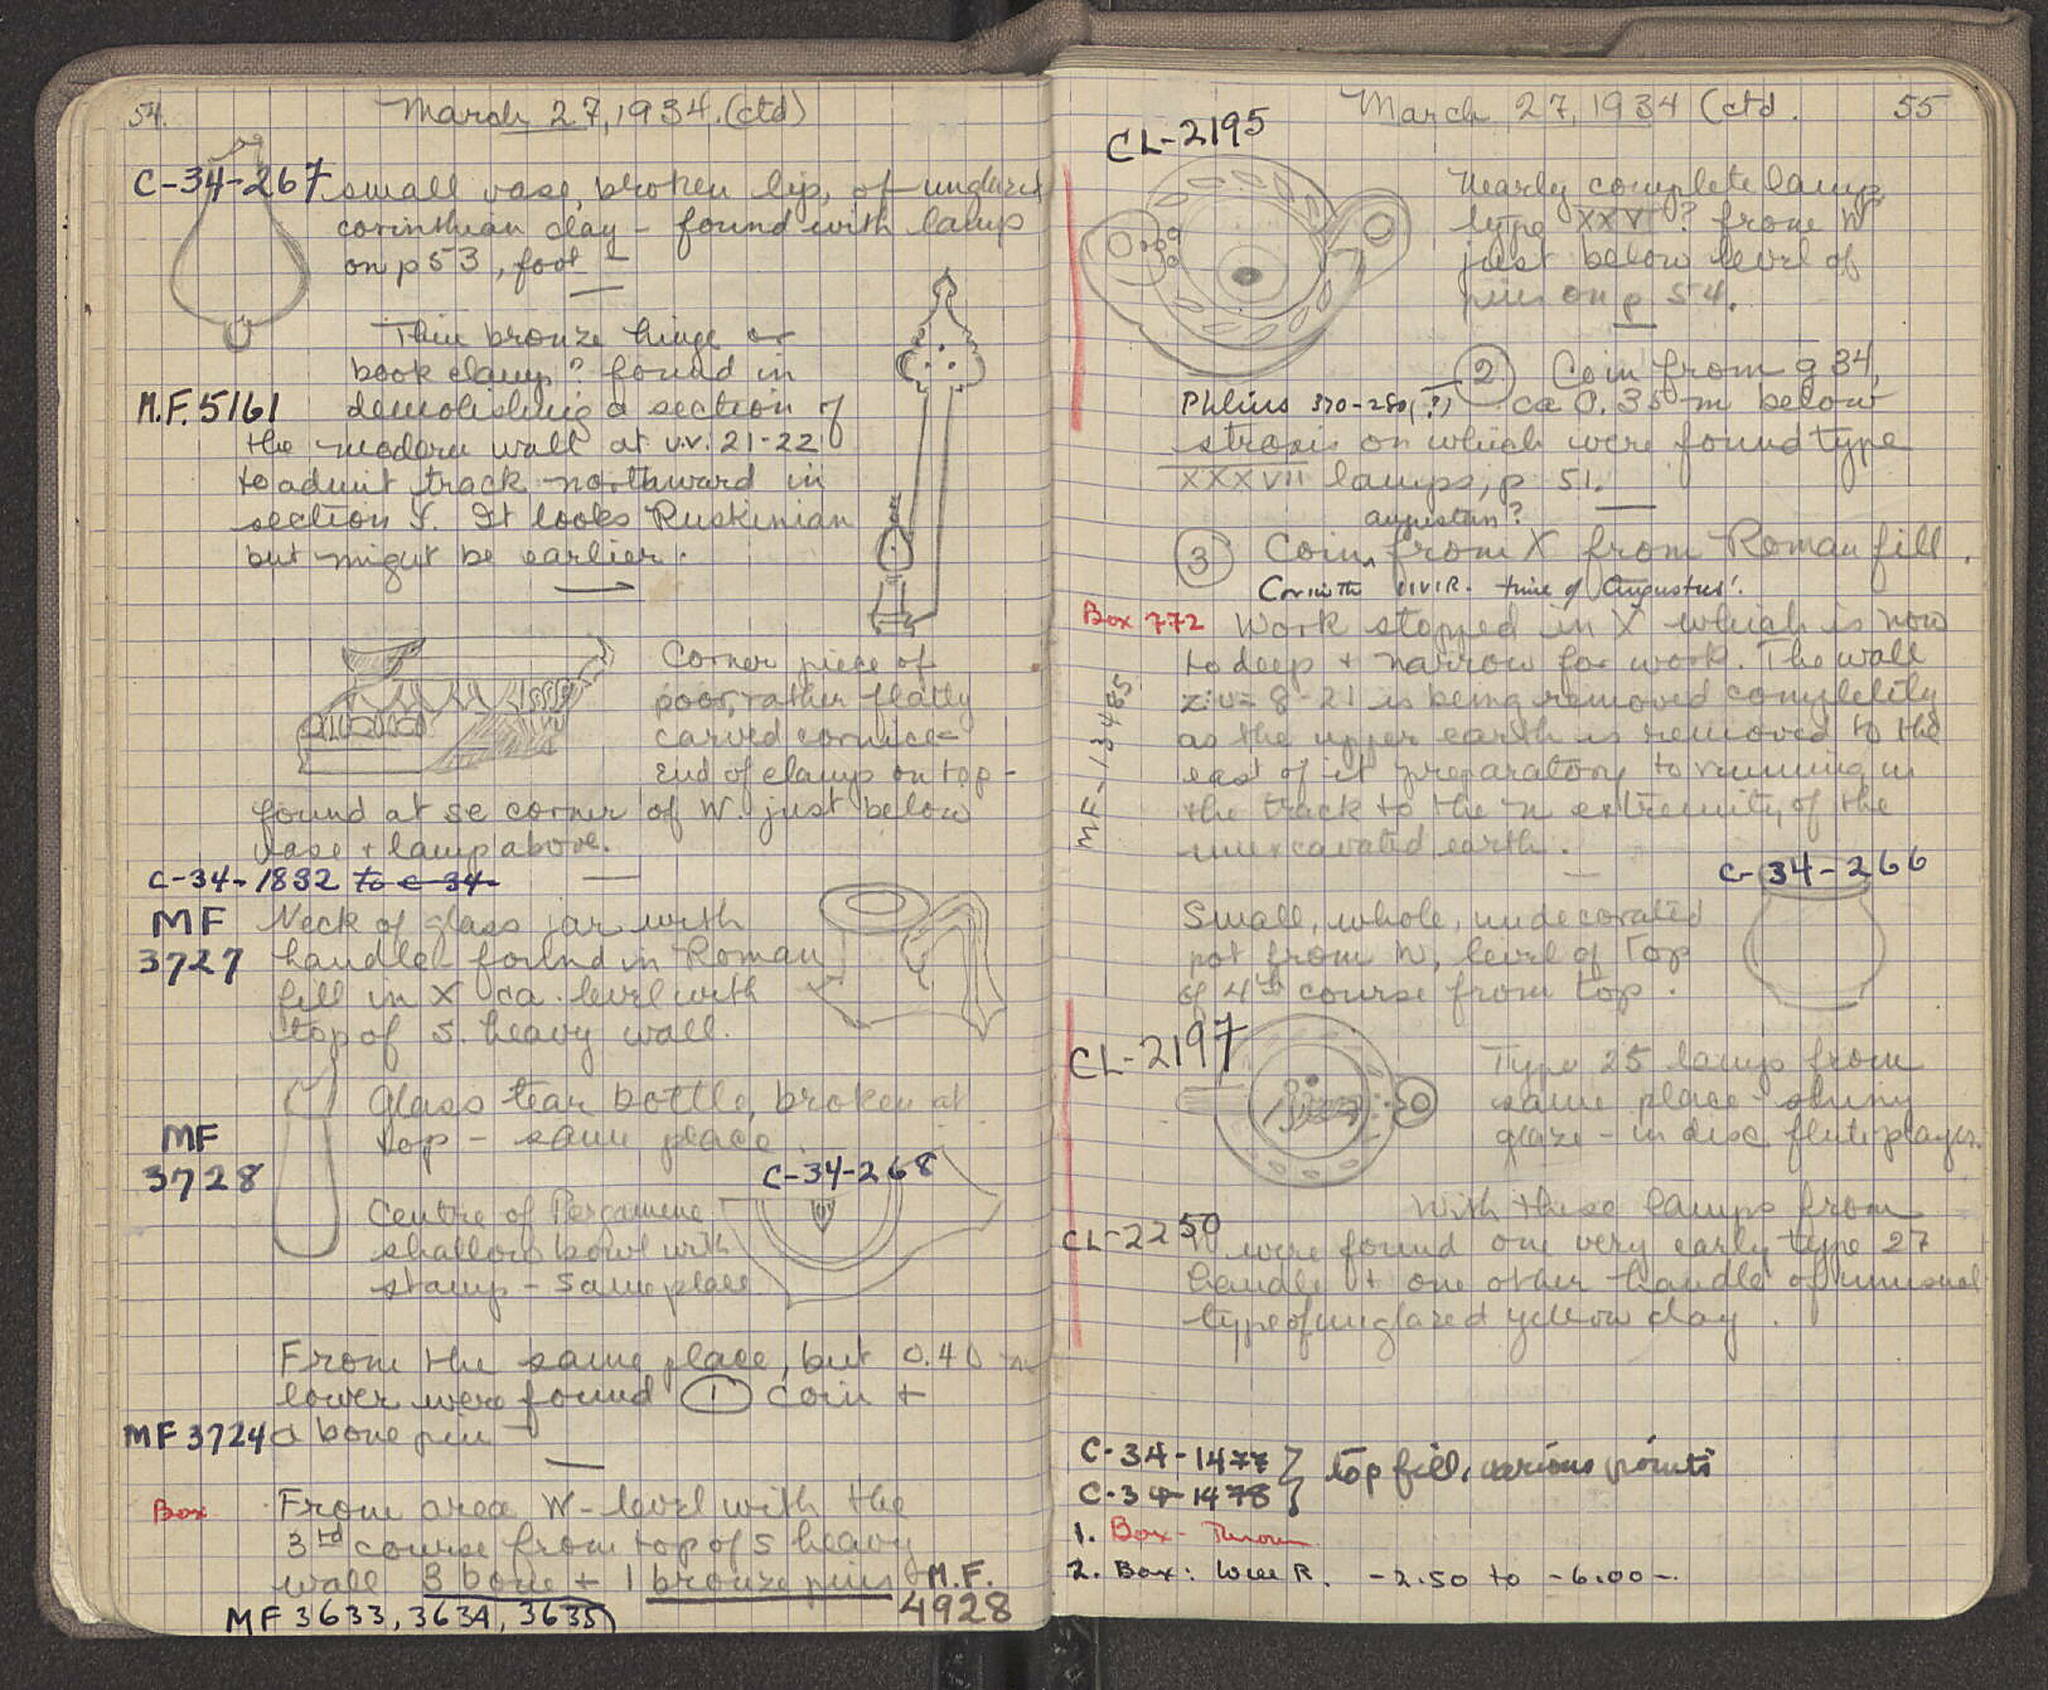 54.
March 27, 1934. (ctd)
C-34-267
small vase, broken lip, of unglazed
corinthian clay – found with lamp
on p 53, foot –
Thin bronze hinge or
book clamp? found in
M.F. 5161
demolishing a section of
the modern wall at v.v. 21-22
to admit track northward in
section Y. It looks Ruskinian
but might be earlier.
Corner piece of
poor, rather flatly
carved cornice –
End of clamp on top –
found at se corner of W. just below
vase + lamp above.
C-34-1832 to C-34-
MF
3727
Neck of glass jar with
handle found in Roman
fill in X ca. level with
top of S. heavy wall.
MF
3728
Glass tear bottle, broken at
top – same place.
C-34-268
Centre of Pergamene
shallow bowl with
stamp – same place
From the same place, but 0.40 m
lower were found (1) coin +
MF 3724
a bone pin –
Box
From area W – level with the
3rd course from top of S heavy
wall 3 bone + 1 bronze pins
MF 3633, 3634, 3635
M.F.
4928
March 27, 1934 (ctd.
55
CL-2195
Nearly complete lamp,
type XXVI? from W
just below level of
pins on p 54.
(2) Coin from g 34,
Phlius 370-280(?)
ca 0.35 m below
strosis on which were found type
XXXVII lamps, p 51.
augustan?
(3) Coin from X from Roman fill.
Corinth IIVIR. time of Augustus!
Box 772
Work stopped in X which is now
to deep + narrow for work. The wall
z:v = 8-21 is being removed completely
as the upper earth is removed to the
east of it preparatory to running in
the track to the n extremity of the
unexcavated earth.
MF-13485
C-34-266
Small, whole, undecorated
pot from W, level of Top
of 4th course from top.
CL-2197
Type 25 lamp from
same place – shiny
glaze – in disc, fluteplayer.
With these lamps from
CL-2250
W were found one very early type 27
handle + one other handle of unusual
type of unglazed yellow clay.
C-34-1477
C-34-1478
top fill, various points
1. Box – Thrown
2. Box: Well R. -2.50 to -6.00-.